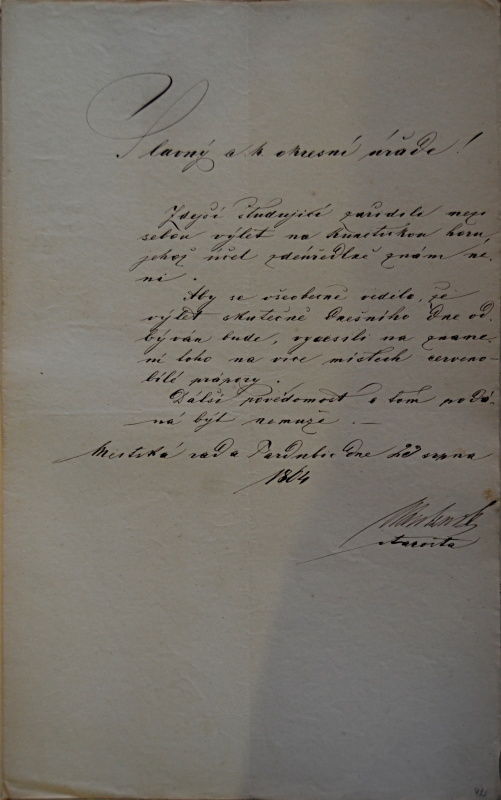 Slavný c. k. okresní úřade!
Zdejší studující zařídili mezi
sebou výlet na Kunětickou horu
jehož účel zdeúředlně znám né-
ní.
Aby se všeobecně vědělo, že
výlet skutečně dnešního dne od-
býván bude, vyvěsili na zname-
ní toho na více místech červeno-
bílé prápory.
Dálší povědomost o tom podá-
ná být nemůže. —
Městská rada Pardubic dne 23 srpna
1864
starosta